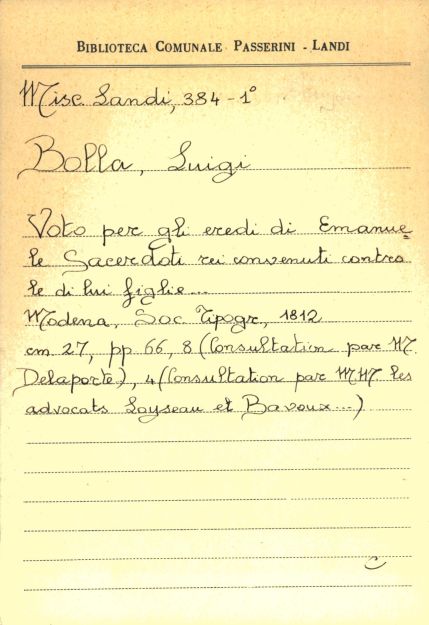 BIBLIOTECA COMUNALE PASSERINI - LANDI
Misc Landi, 384 - 1°
Bolla, Luigi
Voto per gli eredi di Emanue=
le Sacerdoti rei convenuti contro
le di lui figlie...
Modena, Soc Tipogr, 1812
cm 27, pp 66, 8 (Consultation par M.
Delaporte), 4 (Consultation par MM les
advocats Loyseau et Bavoux...)